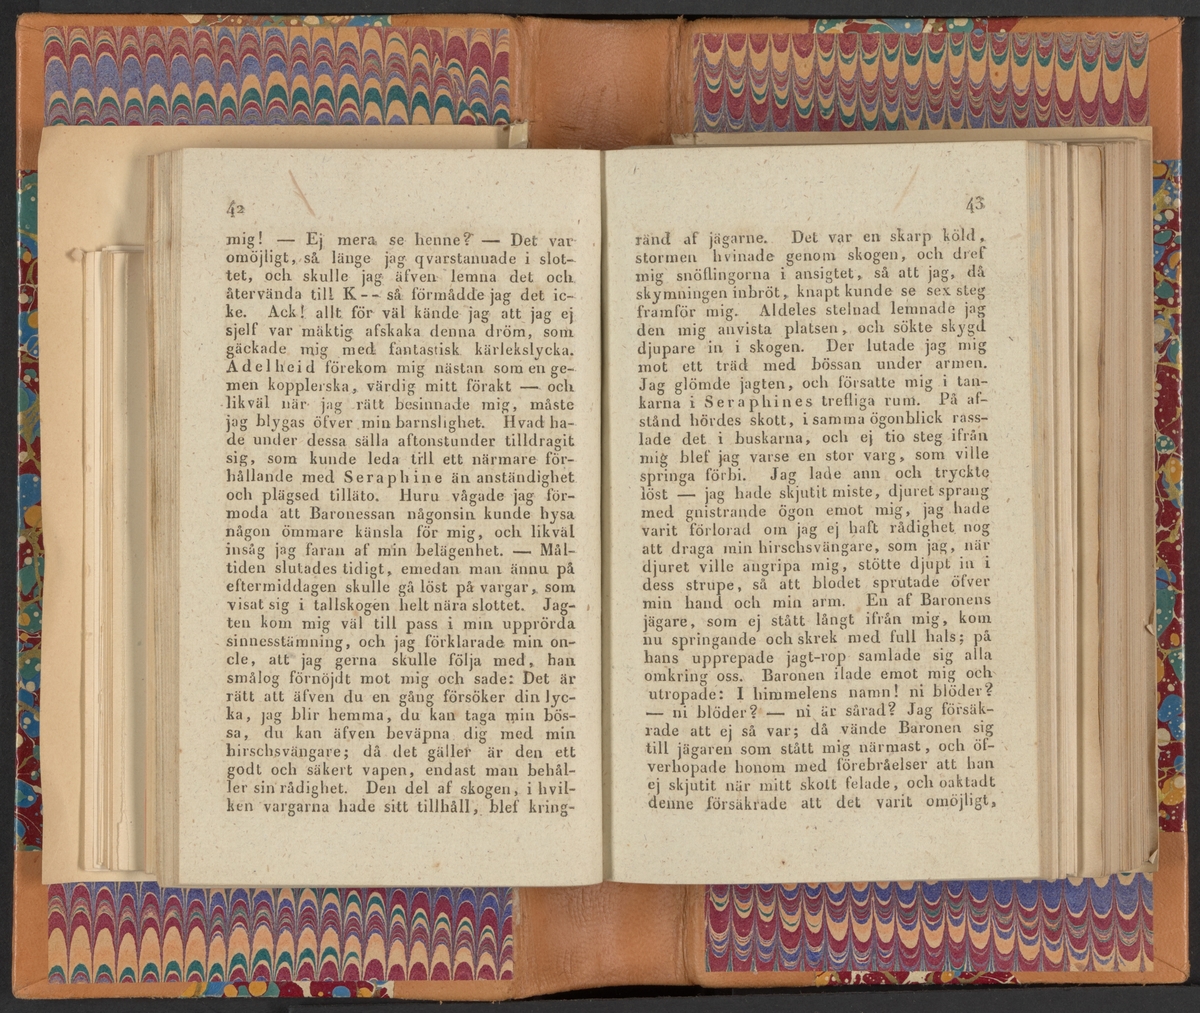 42
mig! — Ej mera se henne? — Det var
omöjligt, så länge jag qvarstannade i slot-
tet, och skulle jag äfven lemna det och
återvända till K-- så förmådde jag det ic-
ke. Ack! allt för väl kände jag att jag ej
sjelf var mäktig afskaka denna dröm, som
gäckade mig med fantastisk kärlekslycka.
Adelheid förekom mig nästan som en ge-
men kopplerska, värdig mitt förakt — och
likväl när jag rätt besinnade mig, måste
jag blygas öfver min barnslighet. Hvad ha-
de under dessa sälla aftonstunder tilldragit
sig, som kunde leda till ett närmare för-
hållande med Seraphine än anständighet
och plägsed tilläto. Huru vågade jag för-
moda att Baronessan någonsin kunde hysa
någon ömmare känsla för mig, och likväl
insåg jag faran af min belägenhet. — Mål-
tiden slutades tidigt, emedan man ännu på
eftermiddagen skulle gå löst på vargar, som
visat sig i tallskogen helt nära slottet. Jag-
ten kom mig väl till pass i min upprörda
sinnesstämning, och jag förklarade min on-
cle, att jag gerna skulle följa med, han
smålog förnöjdt mot mig och sade: Det är
rätt att äfven du en gång försöker din lyc-
ka, jag blir hemma, du kan taga min bös-
sa, du kan äfven beväpna dig med min
hirschsvängare; då det gäller är den ett
godt och säkert vapen, endast man behål-
ler sin rådighet. Den del af skogen, i hvil-
ken vargarna hade sitt tillhåll, blef kring-
43
ränd af jägarne. Det var en skarp köld,
stormen hvinade genom skogen, och dref
mig snöflingorna i ansigtet, så att jag, då
skymningen inbröt, knapt kunde se sex steg
framför mig. Aldeles stelnad lemnade jag
den mig anvista platsen, och sökte skygd
djupare in i skogen. Der lutade jag mig
mot ett träd med bössan under armen.
Jag glömde jagten, och försatte mig i tan-
karna i Seraphines trefliga rum. På af-
stånd hördes skott, i samma ögonblick rass-
lade det i buskarna, och ej tio steg ifrån
mig blef jag varse en stor varg, som ville
springa förbi. Jag lade ann och tryckte
löst — jag hade skjutit miste, djuret sprang
med gnistrande ögon emot mig, jag hade
varit förlorad om jag ej haft rådighet nog
att draga min hirschsvängare, som jag, när
djuret ville angripa mig, stötte djupt in i
dess strupe, så att blodet sprutade öfver
min hand och min arm. En af Baronens
jägare, som ej stått långt ifrån mig, kom
nu springande och skrek med full hals; på
hans upprepade jagt-rop samlade sig alla
omkring oss. Baronen ilade emot mig och
utropade: I himmelens namn! ni blöder?
— ni blöder? — ni är sårad? Jag försäk-
rade att ej så var; då vände Baronen sig
till jägaren som stått mig närmast, och öf-
verhopade honom med förebråelser att han
ej skjutit när mitt skott felade, och oaktadt
denne försäkrade att det varit omöjligt,